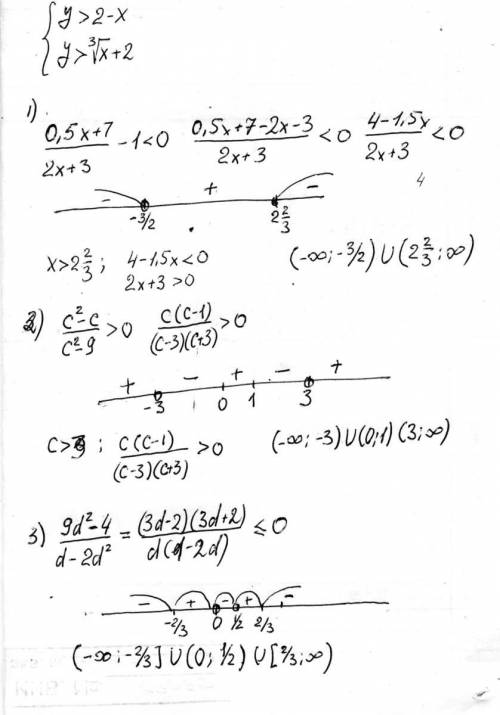 { y>2-x
y>∛x+2
1)
(0,5x+7)/(2x+3) -1<0 (0,5x+7-2x-3)/(2x+3) <0 (4-1,5x)/(2x+3) <0
- + -
-3/2 2 2/3
4
x>2 2/3 ; 4-1,5x<0 (-∞; -3/2) U (2 2/3 ; ∞)
2x+3>0
2) (c²-c)/(c²-9) >0 (c(c-1))/((c-3)(c+3)) >0
+ - + - +
-3 0 1 3
c> ; (c(c-1))/((c-3)(c+3)) >0 (-∞; -3) U (0; 1) (3; ∞)
3) (9d²-4)/(d-2d²) = ((3d-2)(3d+2))/(d(d-2d)) ≤ 0
- + - + -
-2/3 0 1/2 2/3
(-∞; -2/3] U (0; 1/2) U [2/3; ∞)